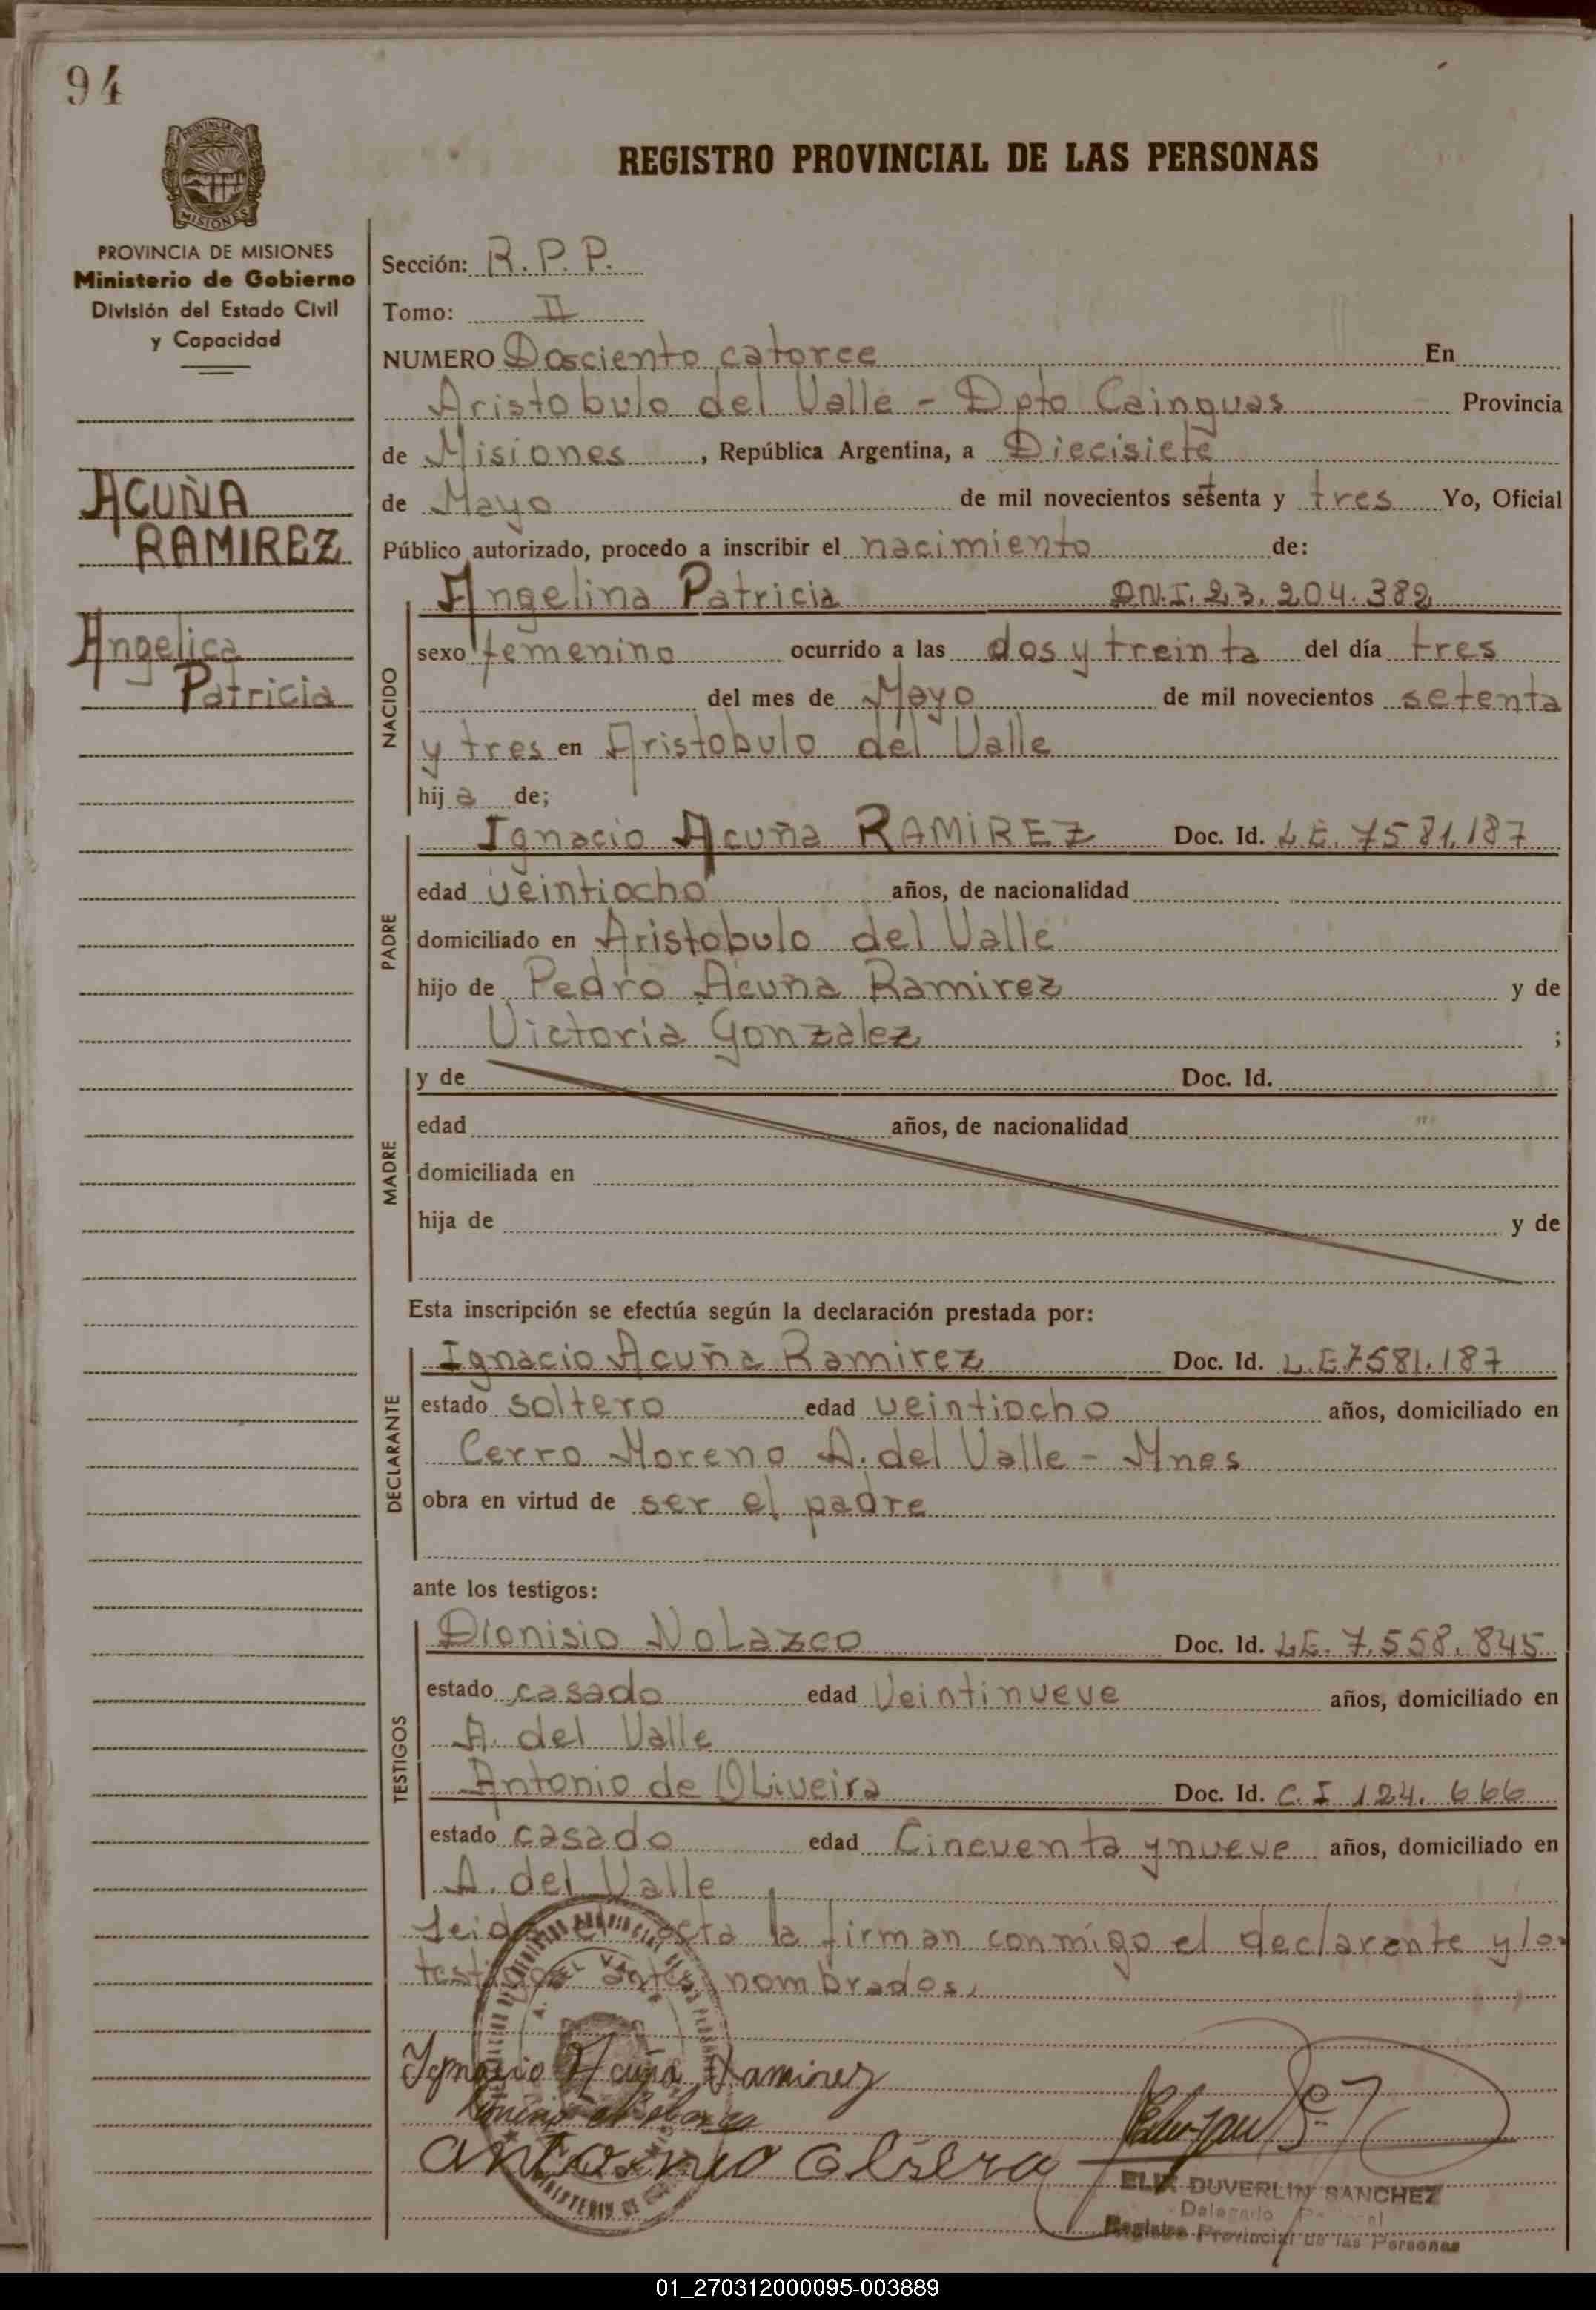 94
PROVINCIA DE
MISIONES
REGISTRO PROVINCIAL DE LAS PERSONAS
PROVINCIA DE MISIONES
Ministerio de Gobierno
División del Estado Civil
y Capacidad
ACUÑA
RAMIREZ
Angelica
Patricia
Sección: R.P.P.
Tomo: II
NUMERO Dosciento catorce En
Aristobulo del Valle - Dpto Cainguas Provincia
de Misiones, República Argentina, a Diecisiete
de Mayo de mil novecientos setenta y tres Yo, Oficial
Público autorizado, procedo a inscribir el nacimiento de:
NACIDO
Angelina Patricia D.N.I. 23.204.382
sexo femenino ocurrido a las dos y treinta del día tres
del mes de Mayo de mil novecientos setenta
y tres en Aristobulo del Valle
hija de;
PADRE
Ignacio Acuña RAMIREZ Doc. Id. L.E. 7581.187
edad veintiocho años, de nacionalidad
domiciliado en Aristobulo del Valle
hijo de Pedro Acuña Ramirez y de
Victoria Gonzalez ;
MADRE
y de Doc. Id.
edad años, de nacionalidad
domiciliada en
hija de y de
Esta inscripción se efectúa según la declaración prestada por:
DECLARANTE
Ignacio Acuña Ramirez Doc. Id. L.E. 7581.187
estado soltero edad veintiocho años, domiciliado en
Cerro Moreno A. del Valle - Mnes
obra en virtud de ser el padre
ante los testigos:
TESTIGOS
Dionisio Nolazco Doc. Id. L.E. 7.558.845
estado casado edad Veintinueve años, domiciliado en
A. del Valle
Antonio de Oliveira Doc. Id. C.I 124.666
estado casado edad Cincuenta y nueve años, domiciliado en
A. del Valle
Leida el acta la firman conmigo el declarante y los
testigos antes nombrados.
Ignacio Acuña Ramirez
antonio
ELIX DUVERLIN SANCHEZ
Delegado
Registro Provincial de las Personas
01_270312000095-003889